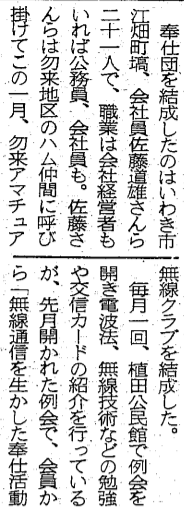 奉仕団を結成したのはいわき市
江畑町塙、会社員佐藤道雄さんら
二十一人で、職業は会社経営者も
いれば公務員、会社員も。佐藤さ
んらは勿来地区のハム仲間に呼び
掛けてこの一月、勿来アマチュア
無線クラブを結成した。
毎月一回、植田公民館で例会を
開き電波法、無線技術などの勉強
や交信カードの紹介を行っている
が、先月開かれた例会で、会員か
ら「無線通信を生かした奉仕活動